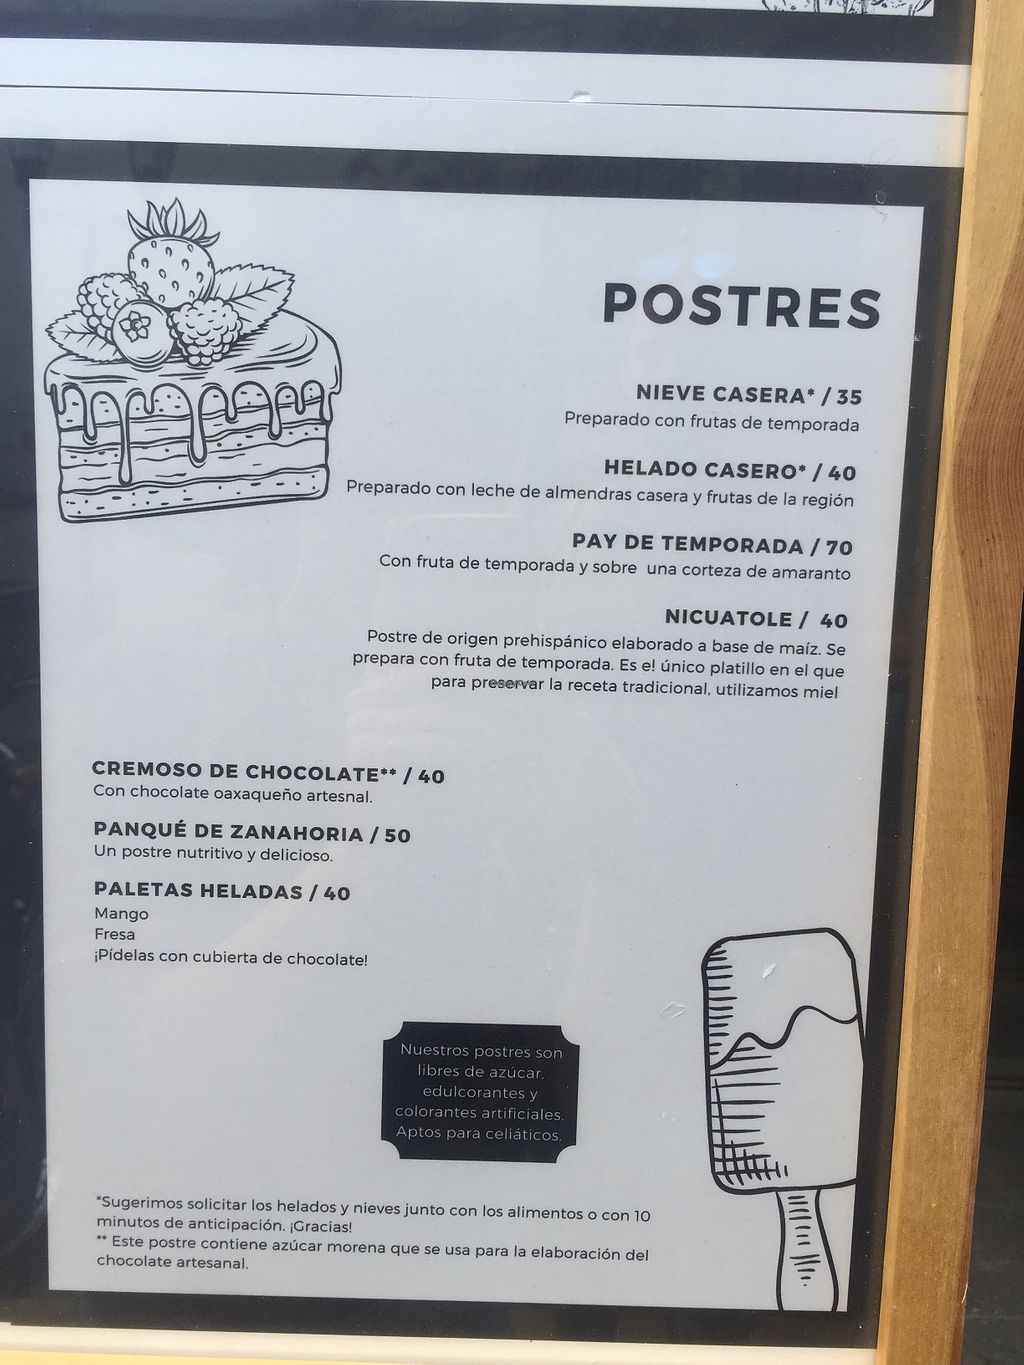 POSTRES
NIEVE CASERA* / 35
Preparado con frutas de temporada
HELADO CASERO* / 40
Preparado con leche de almendras casera y frutas de la región
PAY DE TEMPORADA / 70
Con fruta de temporada y sobre una corteza de amaranto
NICUATOLE / 40
Postre de origen prehispánico elaborado a base de maíz. Se
prepara con fruta de temporada. Es el único platillo en el que
para preservar la receta tradicional, utilizamos miel
CREMOSO DE CHOCOLATE** / 40
Con chocolate oaxaqueño artesnal.
PANQUÉ DE ZANAHORIA / 50
Un postre nutritivo y delicioso.
PALETAS HELADAS / 40
Mango
Fresa
¡Pídelas con cubierta de chocolate!
Nuestros postres son
libres de azúcar,
edulcorantes y
colorantes artificiales.
Aptos para celiáticos.
*Sugerimos solicitar los helados y nieves junto con los alimentos o con 10
minutos de anticipación. ¡Gracias!
** Este postre contiene azúcar morena que se usa para la elaboración del
chocolate artesanal.